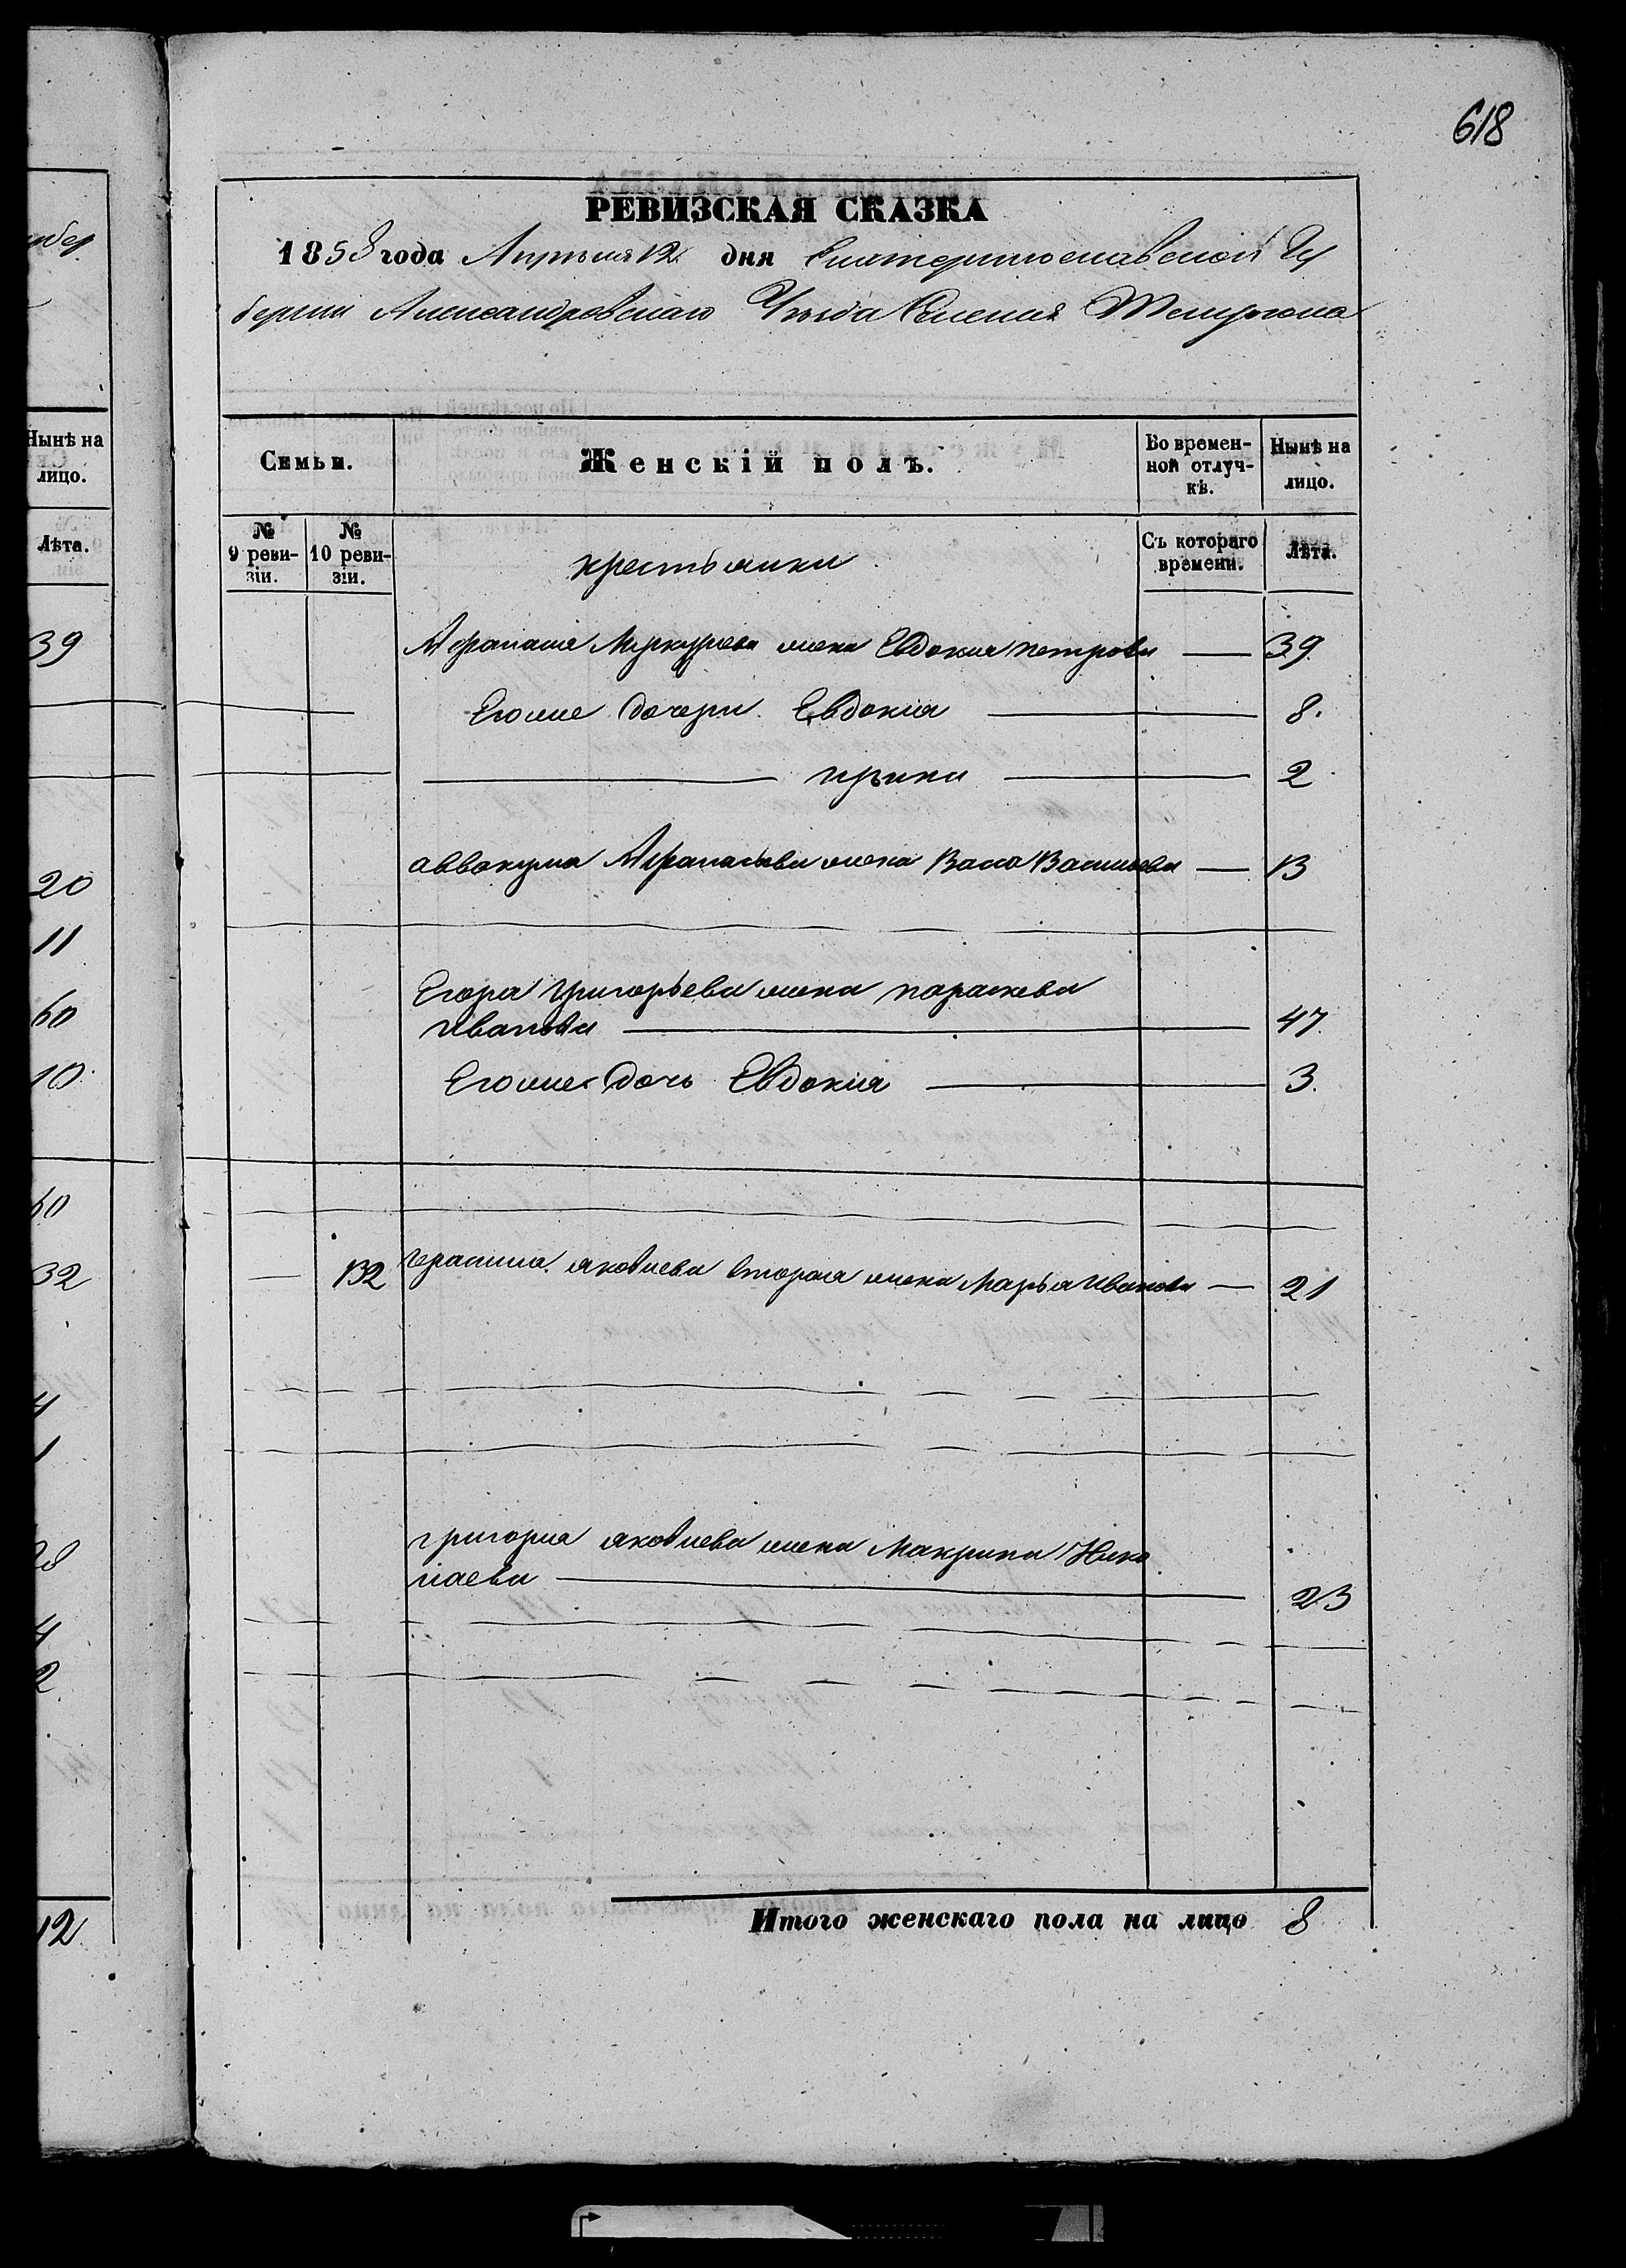 618
РЕВИЗСКАЯ СКАЗКА
1858 года Апрѣля 12 дня Екатеринославской Гу
берніи Александровскаго Уѣзда Селенія
Семьи. Женскій полъ. Во времен- Нынѣ на
ной отлуч- лицо.
кѣ.
№ № крестьянки Съ котораго Лѣта.
9 реви- 10 реви- времени.
зіи. зіи.
Афанасія Меркурьева жена Евдокия петрова — 39
Егоже дочери Евдокія — 8.
ирина — 2
аввакума Афанасьева жена Васса Васильева — 13
Егора григорьева жена параскева
Иванова — 47.
Егоже дочь Евдокія — 3.
— 132 герасима яковлева втораго жена Марья иванова — 21
григория яковлева жена Макрина Нико
лаева — 23
Итого женскаго пола на лицо 8
Нынѣ на
лицо.
Лѣта.
39
20
11
60
10
60
32
4
1
28
4
2
12